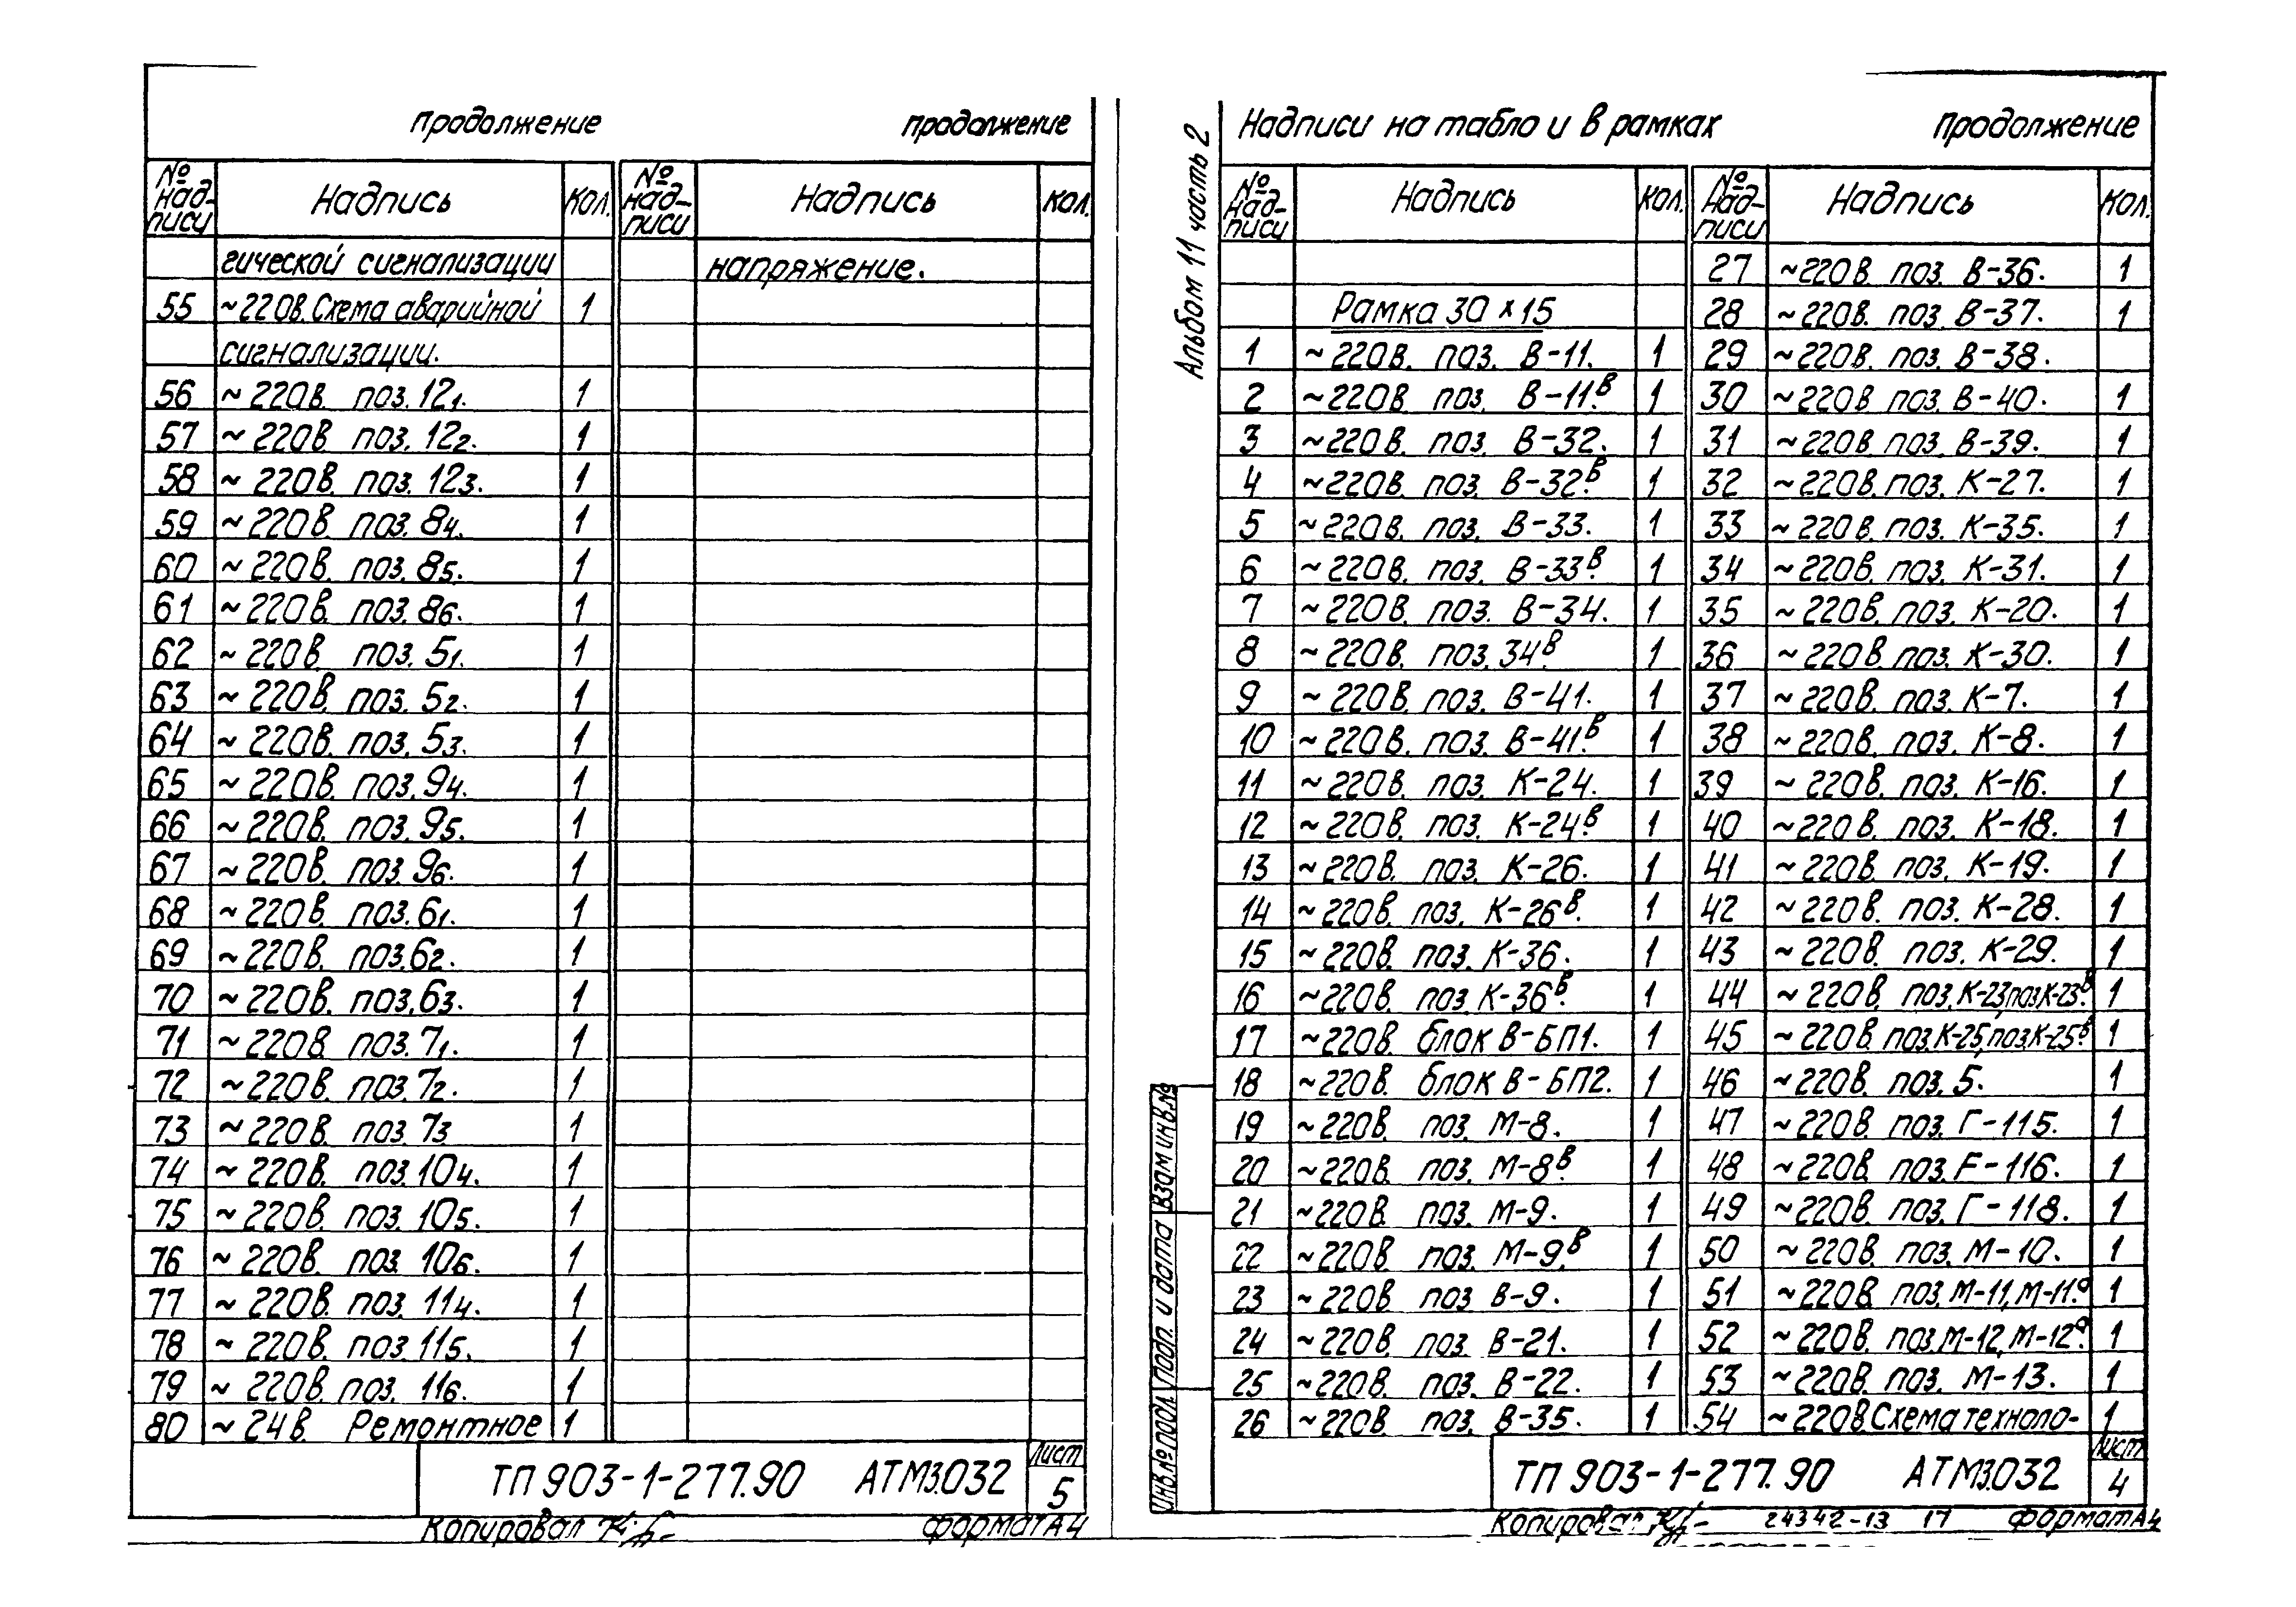 продолжение
№ над- писи Надпись Кол.
гической сигнализации
55 ~220В. Схема аварийной 1
сигнализации.
56 ~220В. поз. 12₁. 1
57 ~220В поз. 12₂. 1
58 ~220В. поз. 12₃. 1
59 ~220В поз. 8₄. 1
60 ~220В. поз. 8₅. 1
61 ~220В. поз. 8₆. 1
62 ~220В. поз. 5₁. 1
63 ~220В. поз. 5₂. 1
64 ~220В. поз. 5₃. 1
65 ~220В. поз. 9₄. 1
66 ~220В. поз. 9₅. 1
67 ~220В. поз. 9₆. 1
68 ~220В. поз. 6₁. 1
69 ~220В. поз. 6₂. 1
70 ~220В. поз. 6₃. 1
71 ~220В поз. 7₁. 1
72 ~220В. поз. 7₂. 1
73 ~220В. поз. 7₃ 1
74 ~220В. поз. 10₄. 1
75 ~220В. поз. 10₅. 1
76 ~220В. поз. 10₆. 1
77 ~220В. поз. 11₄. 1
78 ~220В. поз. 11₅. 1
79 ~220В. поз. 11₆. 1
80 ~24В. Ремонтное 1
продолжение
№ над- писи Надпись Кол.
напряжение.
ТП 903-1-277.90 АТМ3.032
Лист
5
Копировал
формат А4
Альбом 11 часть 2
Надписи на табло и в рамках
№ над- писи Надпись Кол.
Рамка 30 х 15
1 ~220В. поз. В-11. 1
2 ~220В поз. В-11ᴮ. 1
3 ~220В. поз. В-32. 1
4 ~220В. поз. В-32ᴮ. 1
5 ~220В. поз. В-33. 1
6 ~220В. поз. В-33ᴮ. 1
7 ~220В. поз. В-34. 1
8 ~220В. поз. 34ᴮ. 1
9 ~220В. поз. В-41. 1
10 ~220В. поз. В-41ᴮ. 1
11 ~220В. поз. К-24. 1
12 ~220В. поз. К-24ᴮ. 1
13 ~220В. поз. К-26. 1
14 ~220В. поз. К-26ᴮ. 1
15 ~220В. поз. К-36. 1
16 ~220В. поз К-36ᴮ. 1
17 ~220В. блок В-БП1. 1
18 ~220В. блок В-БП2. 1
19 ~220В. поз. М-8. 1
20 ~220В. поз. М-8ᴮ. 1
21 ~220В. поз. М-9. 1
22 ~220В. поз. М-9ᴮ. 1
23 ~220В. поз В-9. 1
24 ~220В. поз. В-21. 1
25 ~220В. поз. В-22. 1
26 ~220В. поз. В-35. 1
продолжение
№ над- писи Надпись Кол.
27 ~220В. поз. В-36. 1
28 ~220В. поз. В-37. 1
29 ~220В. поз. В-38.
30 ~220В поз. В-40. 1
31 ~220В. поз. В-39. 1
32 ~220В. поз. К-27. 1
33 ~220В. поз. К-35. 1
34 ~220В. поз. К-31. 1
35 ~220В. поз. К-20. 1
36 ~220В. поз. К-30. 1
37 ~220В. поз. К-7. 1
38 ~220В. поз. К-8. 1
39 ~220В. поз. К-16. 1
40 ~220В. поз. К-18. 1
41 ~220В. поз. К-19. 1
42 ~220В. поз. К-28. 1
43 ~220В. поз. К-29. 1
44 ~220В. поз. К-23, поз К-23ᴮ. 1
45 ~220В. поз. К-25, поз. К-25ᴮ. 1
46 ~220В. поз. 5. 1
47 ~220В. поз. Г-115. 1
48 ~220В. поз. F-116. 1
49 ~220В. поз. Г-118. 1
50 ~220В. поз. М-10. 1
51 ~220В. поз. М-11, М-11ᵃ. 1
52 ~220В. поз. М-12, М-12ᵃ. 1
53 ~220В. поз. М-13. 1
54 ~220В. Схема техноло- 1
Инв. № подл. Подп. и дата Взам инв. №
ТП 903-1-277.90 АТМ3.032
Лист
4
Копировал
24342-13 17 формат А4